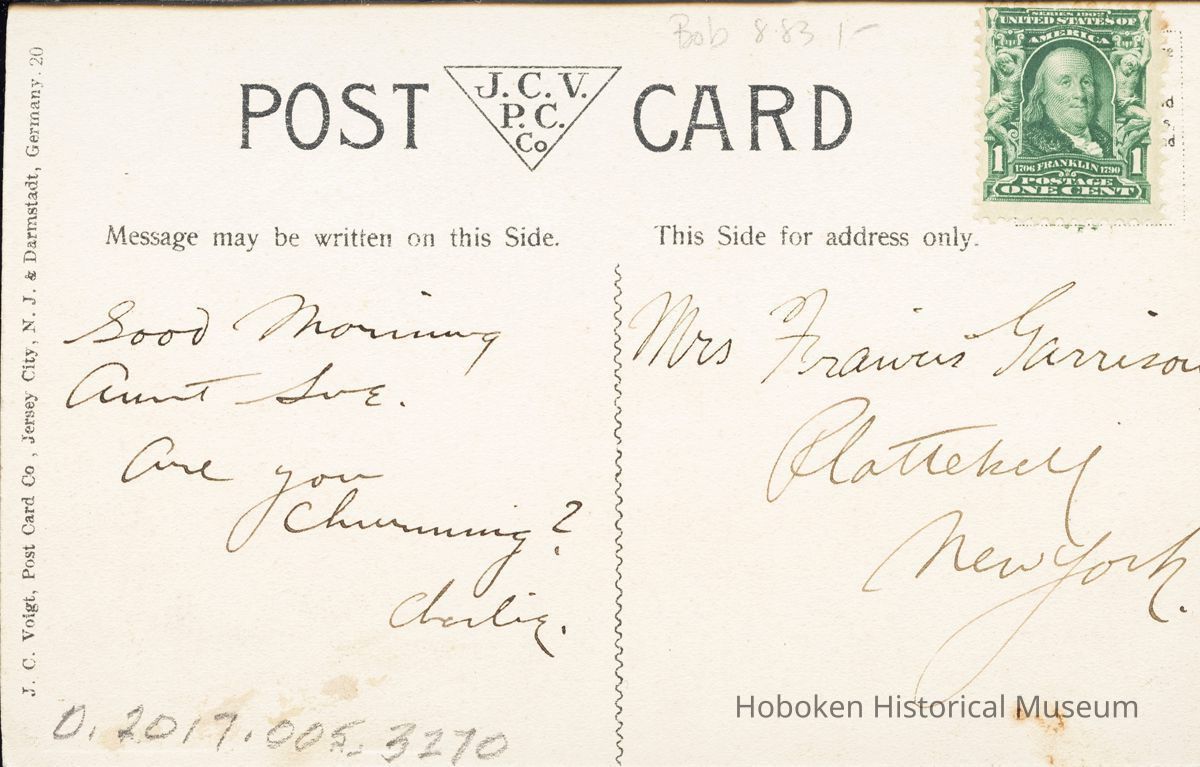 Bob 883 1-
SERIES 1902
UNITED STATES OF
AMERICA
1 1706 FRANKLIN 1790 1
POSTAGE
ONE CENT
POST CARD
J. C. V.
P. C.
Co
Message may be written on this Side.
This Side for address only.
Good Morning
Aunt Sue.
Are you
Churnning?
Charlie.
Mrs Francis Garrison
Plattekill
New York.
J. C. Voigt, Post Card Co., Jersey City, N. J. & Darmstadt, Germany. 20
0. 2017. 005. 3270
Hoboken Historical Museum